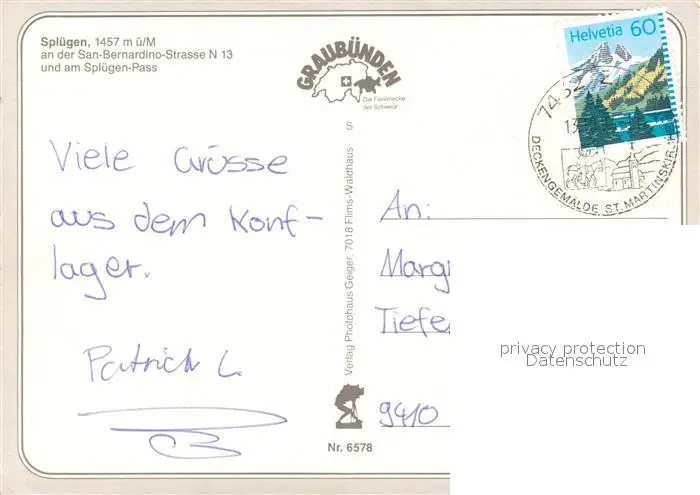 Splügen, 1457 m ü/M
an der San-Bernardino-Strasse N 13
und am Splügen-Pass
GRAUBÜNDEN
Die Ferienecke
der Schweiz
S
Helvetia 60
DECKENGEMÄLDE ST. MARTINSKIRCH
Viele Grüsse
aus dem Konf-
lager.
Patrick L.
Verlag Photohaus Geiger, 7018 Flims-Waldhaus
An:
Marg
Tiefe
9410
privacy protection
Datenschutz
Nr. 6578